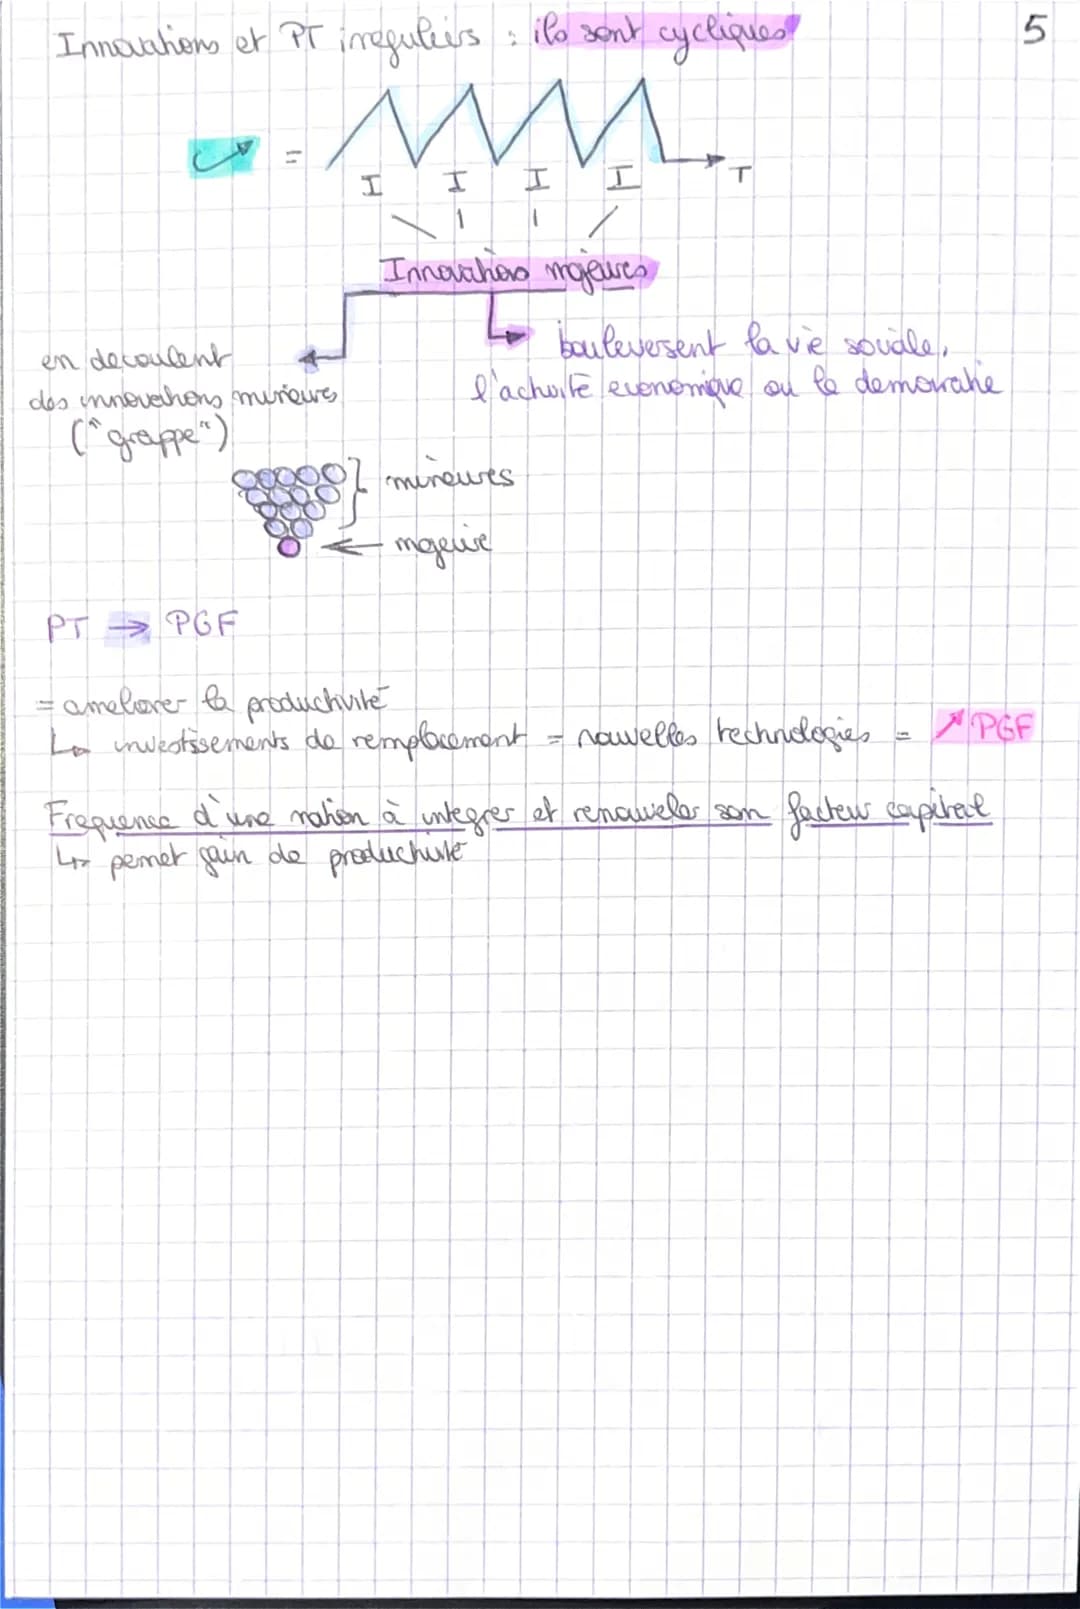 Innovations et PT irreguliers : ils sont cycliques
5
=
I I I I T
Innovations majeures
en decoulent
des innovations mineures
("grappe")
boulevesent la vie sociale,
l'activité economique ou la democratie
mineures
majeure
PT → PGF
= ameliorer la productivité
↳ investissements de remplacement = nouvelles technologies = ↗ PGF
Frequence d'une nation à integrer et renouveler son facteur capital
↳ permet gain de productivité